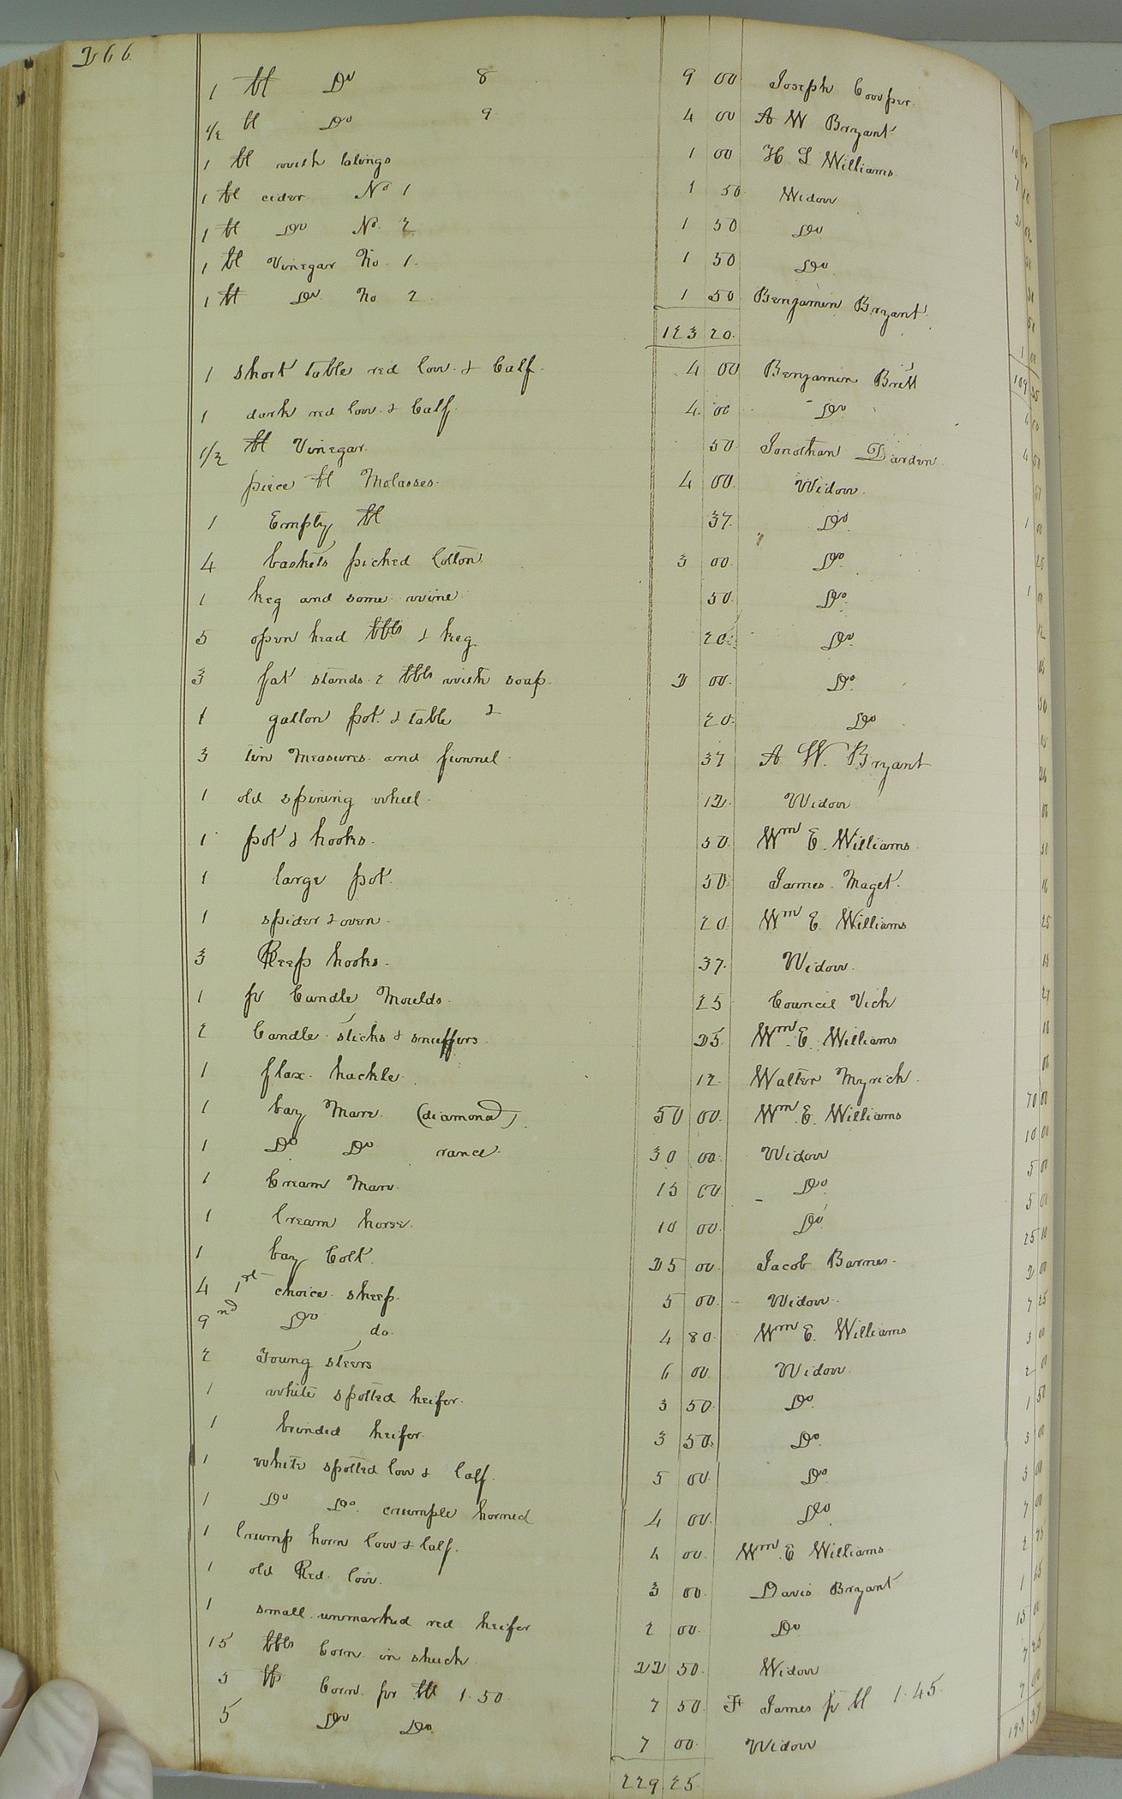 266
1 bl Do 8 9 00 Joseph Cooper
1/2 bl Do 9 4 00 A W Bryant
1 bl with 1 00 H S Williams
1 bl cider No 1 1 50 Widow
1 bl Do No. 2 1 50 Do
1 bl Vinegar No. 1. 1 50 Do
1 bl Do No 2 1 50 Benjamin Bryant
123 20
1 short table red Cow & Calf 4 00 Benjamin Britt
1 dark red Cow & Calf 4 00 Do
1/2 bl Vinegar 50 Jonathan Darden
piece bl Molasses 4 00 Widow
1 Empty bl 37 Do
4 baskets picked Cotton 3 00 Do
1 keg and some wine 50 Do
5 open head bbls & keg 20 Do
3 fat stands 2 bbls with soap 2 00 Do
1 gallon pot & table & 20 Do
3 tin Measures and funnel 37 A. W. Bryant
1 old spining wheel 12 Widow
1 pot & hooks 50 Wm E. Williams
1 large pot 50 James Maget
1 spider & oven 20 Wm E. Williams
3 Reep hooks 37 Widow
1 pr Candle Moulds 25 Council Vick
2 Candle sticks & snuffers 25 Wm E. Williams
1 flax hackle 12 Walter Myrick
1 bay Mare (diamond) 50 00 Wm E. Williams
1 Do Do 30 00 Widow
1 Cream Mare 15 00 Do
1 Cream horse 10 00 Do
1 bay Colt 25 00 Jacob Barnes
4 1st choice sheep 5 00 Widow
9 nd Do do 4 80 Wm E. Williams
2 Young steers 6 00 Widow
1 white spotted heifer 3 50 Do
1 brinded heifer 3 50 Do
1 white spotted Cow & Calf 5 00 Do
1 Do Do crumple horned 4 00 Do
1 Crump horn Cow & Calf 4 00 Wm E Williams
1 old Red Cow 3 00 Davis Bryant
1 small unmarked red heifer 2 00 Do
15 bbls Corn in shuck 22 50 Widow
5 bls Corn per bl 1.50 7 50 James p bl 1.45
5 Do Do 7 00 Widow
229 25